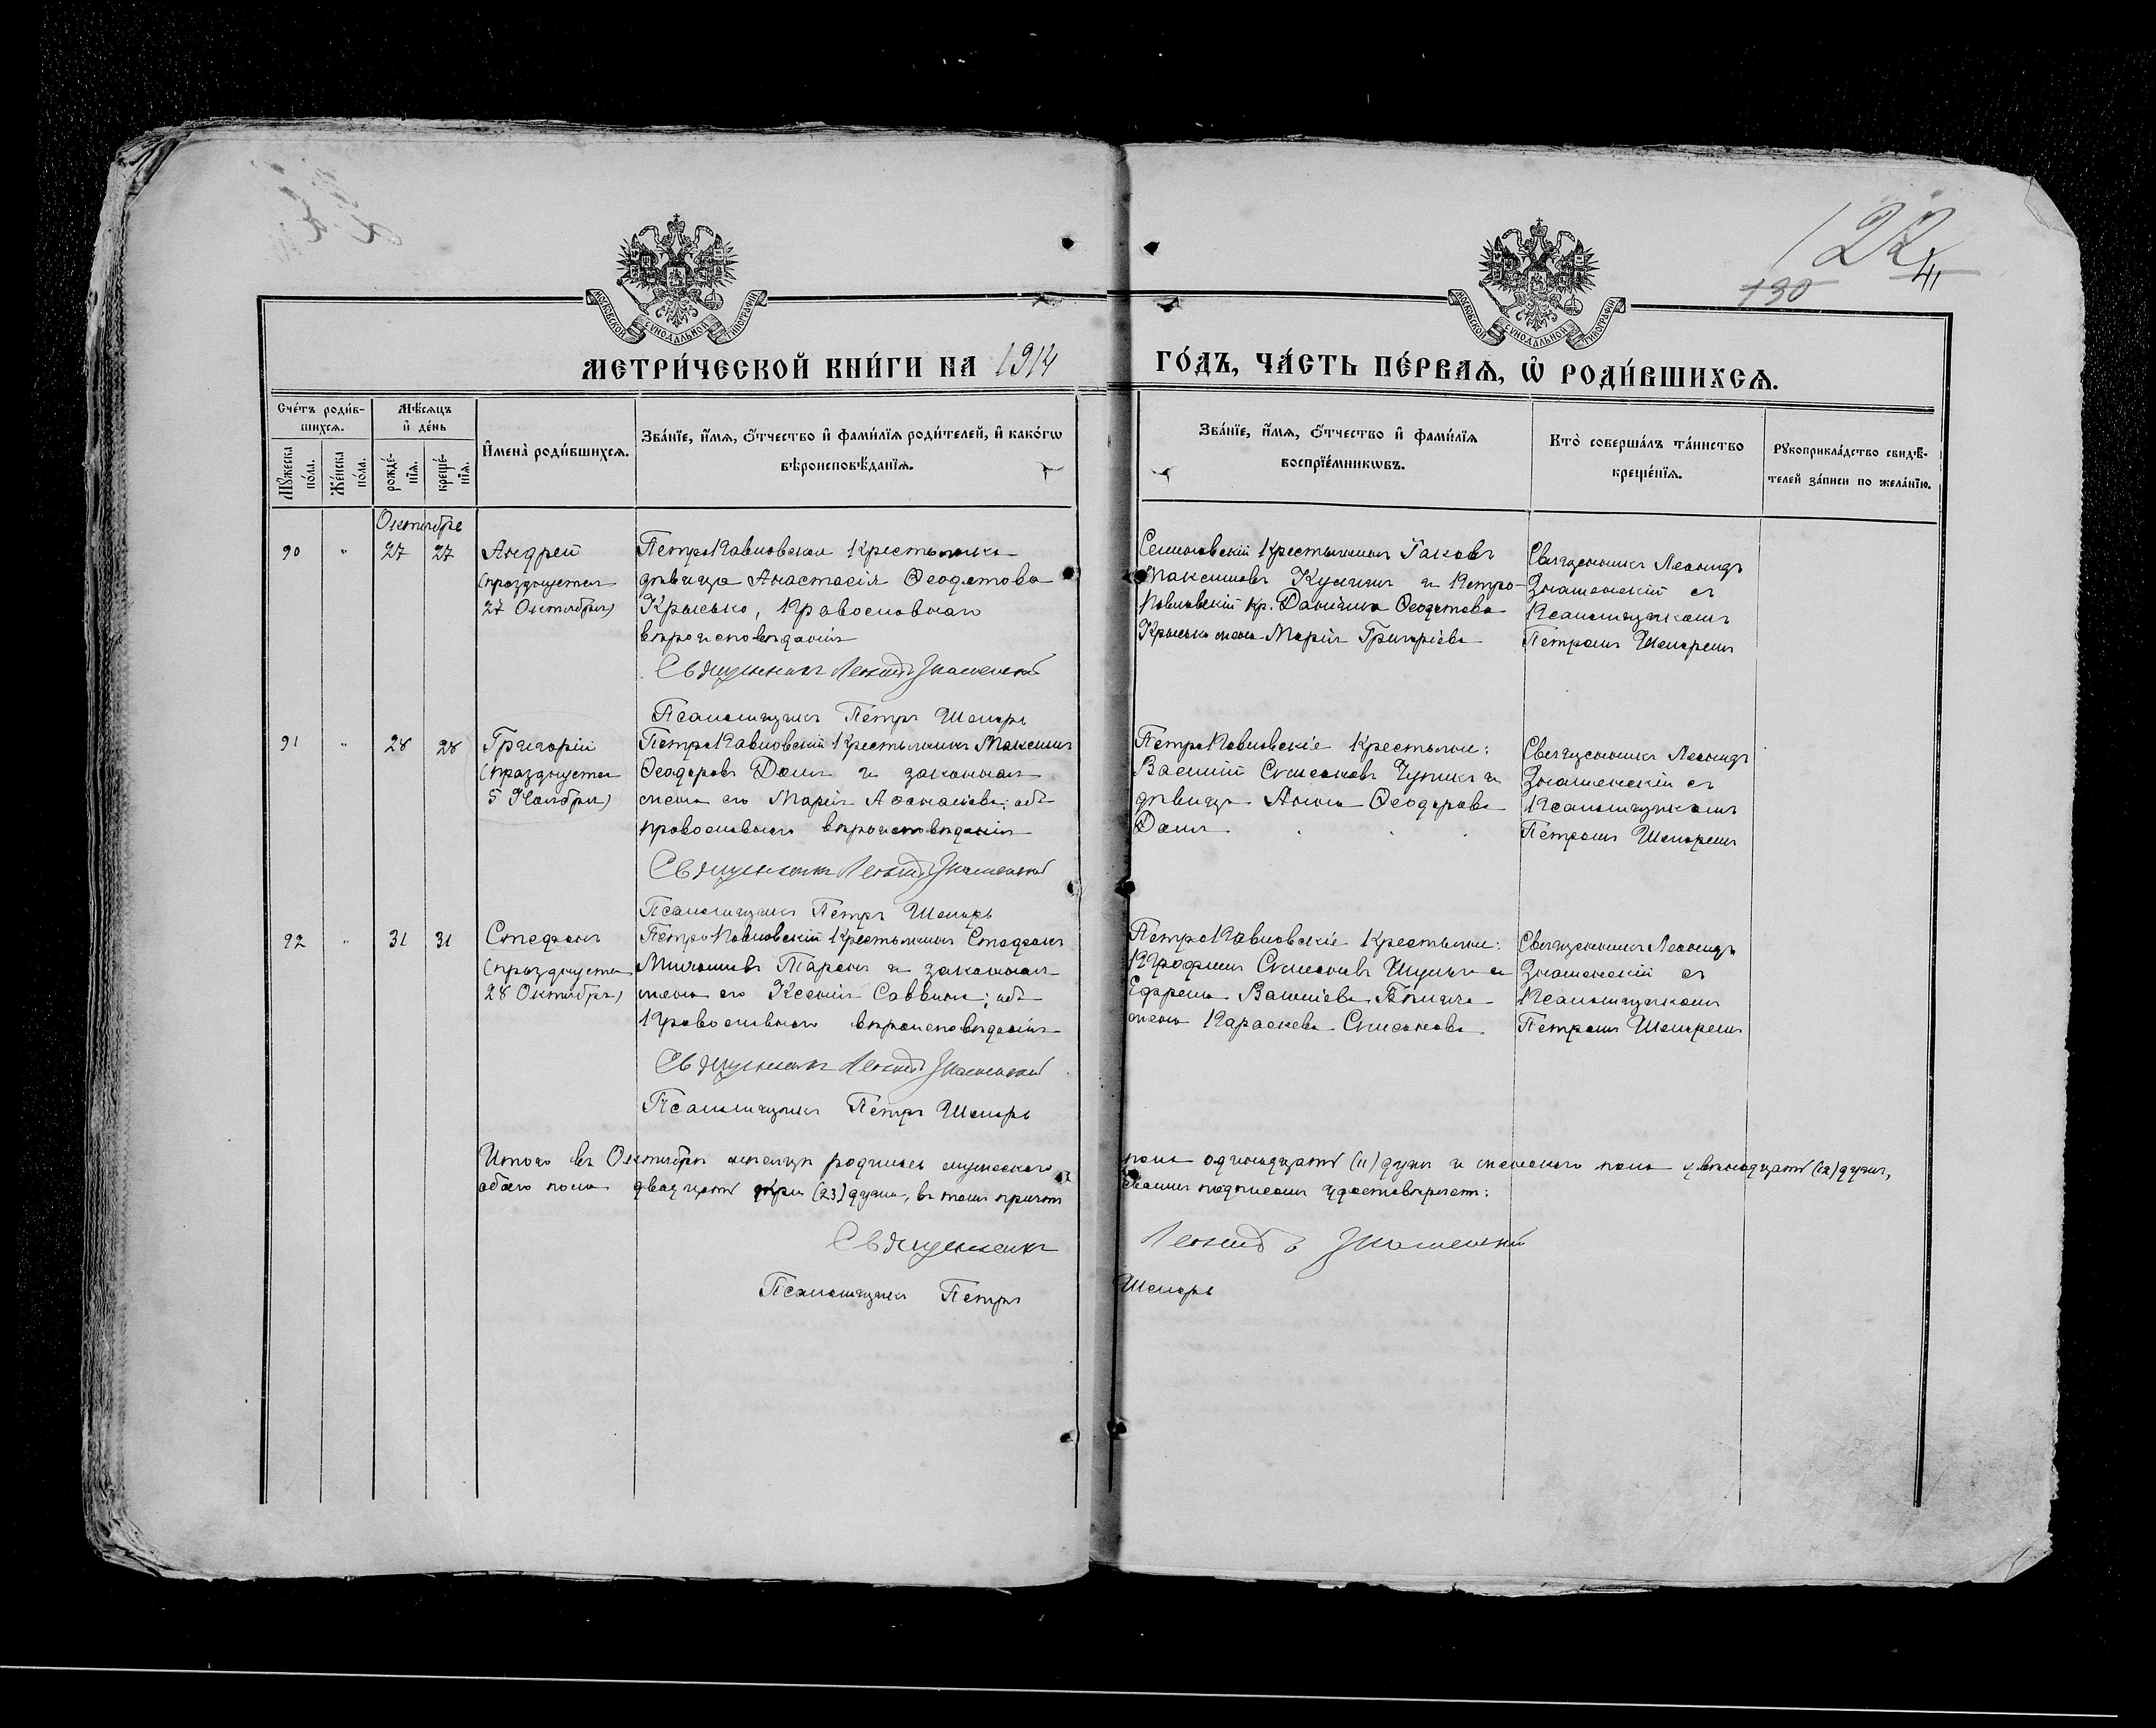 122
4
130
МОСКОВСКОЙ СѴНОДАЛЬНОЙ ТИПОГРАФІИ
МОСКОВСКОЙ СѴНОДАЛЬНОЙ ТИПОГРАФІИ
МЕТРИ́ЧЕСКОЙ КНИ́ГИ НА 1914 ГО́ДЪ, ЧА́СТЬ ПЕ́РВАѦ, Ѡ҆ РОДИ́ВШИХСѦ.
Сче́тъ роди́в-
шихсѧ.
Мꙋ́жеска по́ла.
Же́нска по́ла.
Мѣ́сѧцъ
и҆ де́нь
рожде́-нїѧ.
креще́-нїѧ.
И҆мена̀ роди́вшихсѧ.
Зва́нїе, и҆́мѧ, ѻ҆́тчество и҆ фами́лїѧ роди́телей, и҆ како́гѡ
вѣроисповѣ́данїѧ.
Зва́нїе, и҆́мѧ, ѻ҆́тчество и҆ фами́лїѧ
воспрїе́мникѡвъ.
Кто̀ соверша́лъ та́инство
креще́нїѧ.
Рꙋкоприкла́дство свидѣ́-
телей за́писи по жела́нїю.
Октябрь
90 " 27 27
Андрей
(празднуется
27 Октября)
ПетроПавловская Крестьянка
дѣвица Анастасія Ѳеодотова
Крысько, Православнаго
вѣроисповѣданія
Священникъ Леонидъ Знаменскій
Псаломщикъ Петръ Шепарь
Крестьянинъ Іаковъ
Максимовъ и Петро-
Павловскій кр. Даніила Ѳеодотова
Крысько жена Марія Григоріева
Священникъ Леонидъ
Знаменскій съ
Псаломщикомъ
Петромъ Шепаремъ
91 " 28 28
Григорій
(празднуется
5 Ноября)
ПетроПавловскій Крестьянинъ Максимъ
Ѳеодоровъ и законная
жена его Марія Аѳанасіева; оба
православнаго вѣроисповѣданія
Священникъ Леонидъ Знаменскій
Псаломщикъ Петръ Шепарь
ПетроПавловскіе Крестьяне:
Василій Симеоновъ Чупикъ и
дѣвица Анна Ѳеодорова
Священникъ Леонидъ
Знаменскій съ
Псаломщикомъ
Петромъ Шепаремъ
92 " 31 31
Стефанъ
(празднуется
28 Октября)
ПетроПавловскій Крестьянинъ Стефанъ
Таранъ и законная
жена его Ксенія Саввина; оба
Православнаго вѣроисповѣданія
Священникъ Леонидъ Знаменскій
Псаломщикъ Петръ Шепарь
ПетроПавловскіе Крестьяне:
Трофимъ Симеоновъ и
Ефрема Василіева
жена Параскева Симеонова
Священникъ Леонидъ
Знаменскій съ
Псаломщикомъ
Петромъ Шепаремъ
Итого въ Октябрѣ мѣсяцѣ родилось мужескаго пола одиннадцать (11) душъ и женскаго пола двѣнадцать (12) душъ,
обоего пола двадцать три (23) души, въ томъ причтъ своимъ подписомъ удостовѣряетъ:
Священникъ Леонидъ Знаменскій
Псаломщикъ Петръ Шепарь